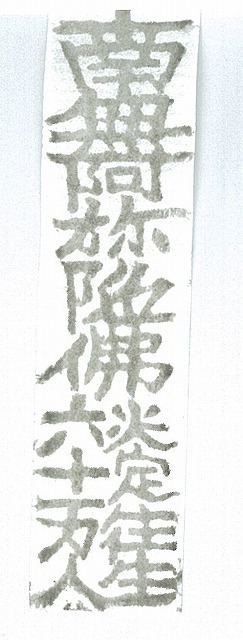 南無阿弥陀佛
决定往生
六十万人